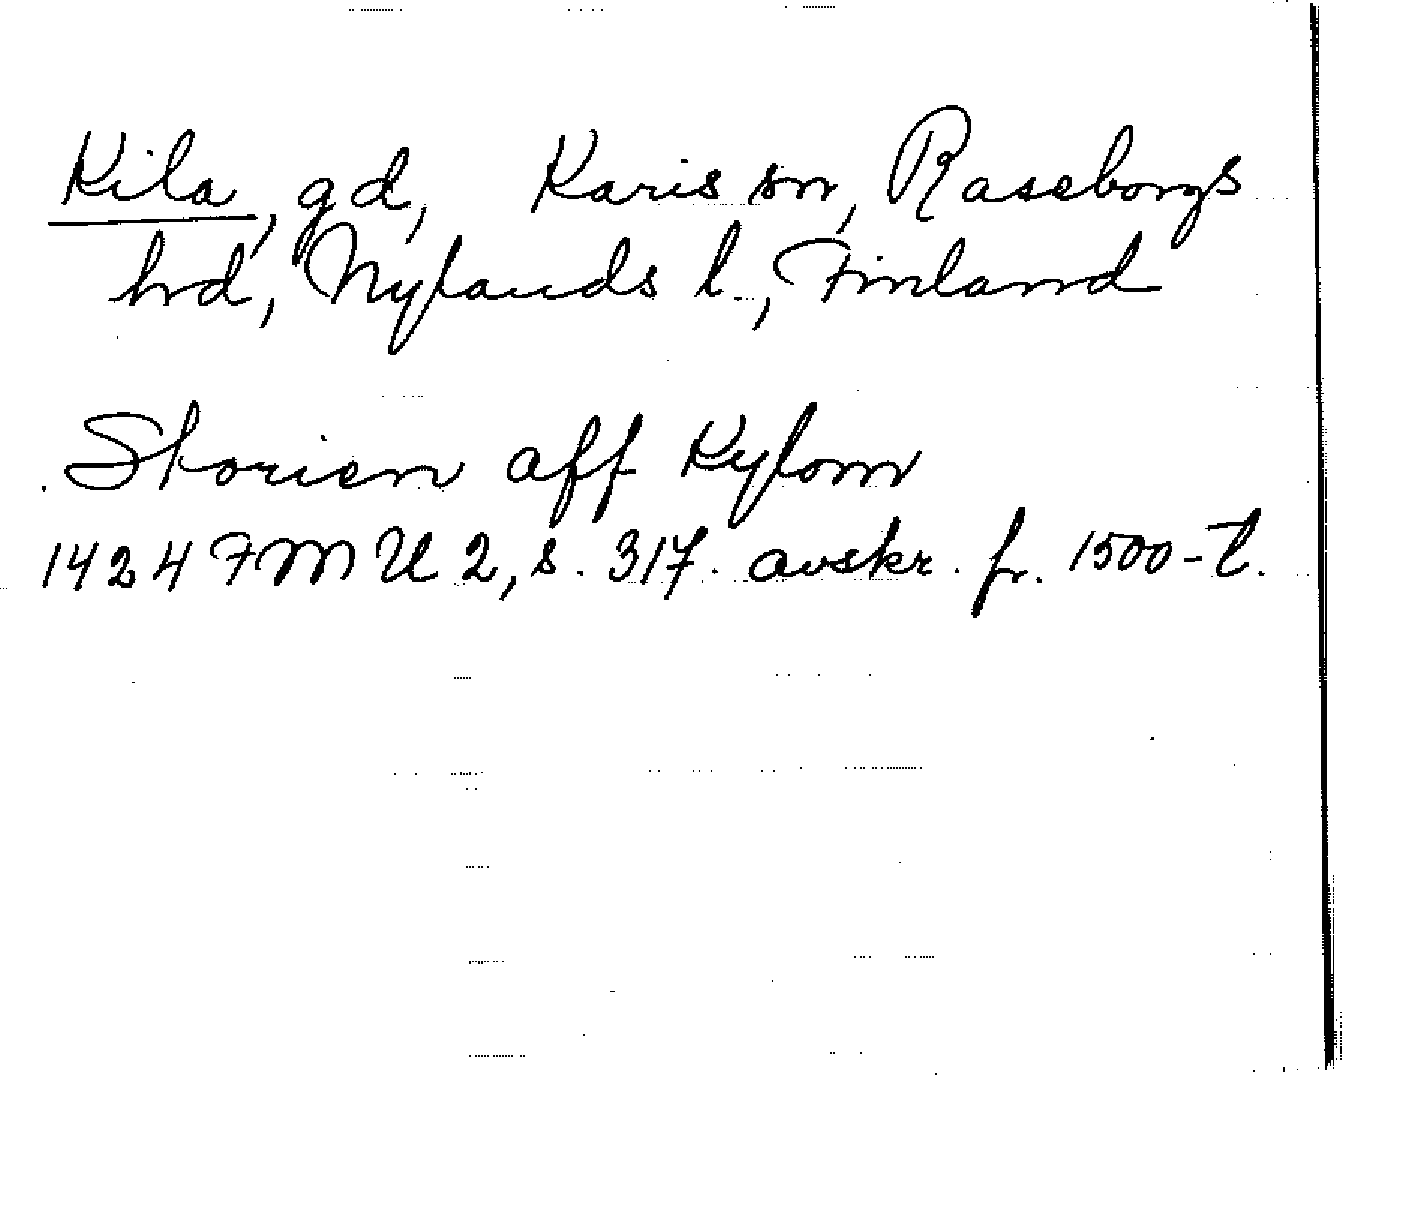 Kila, gd, Karis sn, Raseborgs
hd, Nylands l., Finland
Skorien aff Kylom
1424 FMU 2, s. 317. avskr. fr. 1500-t.